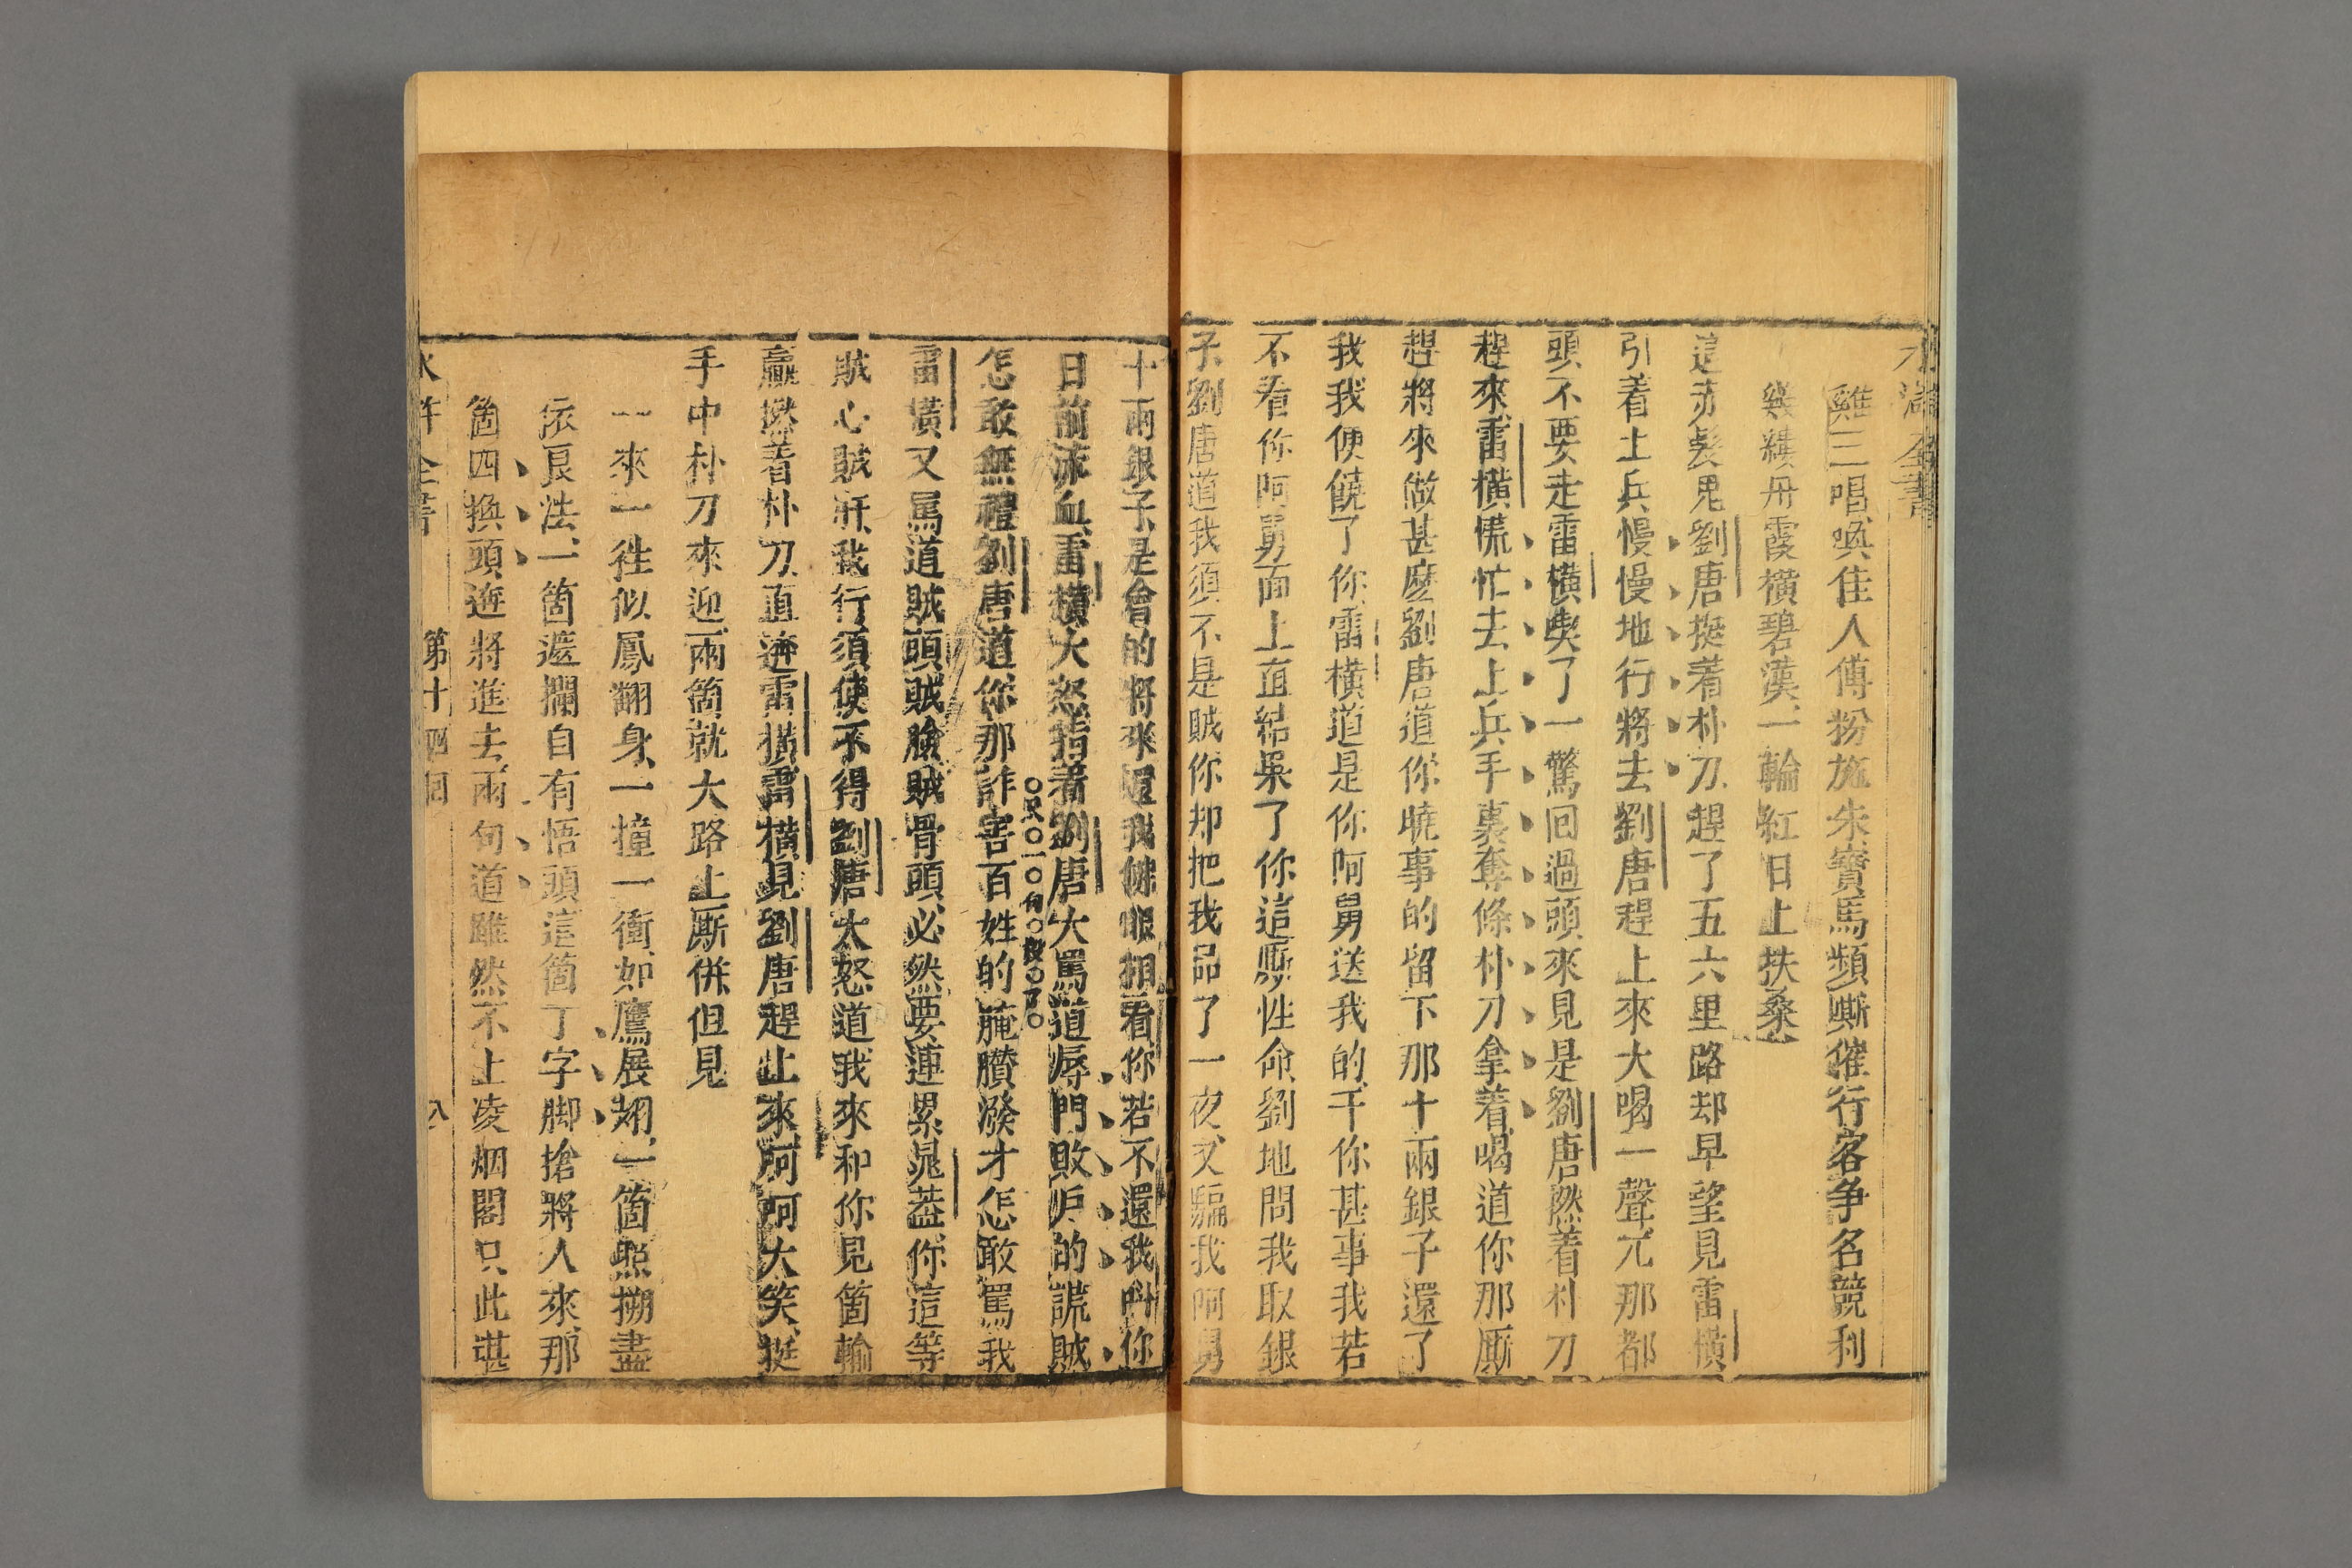 水滸全書
雞三唱喚佳人傅粉施朱寶馬頻嘶催行客爭名競利
幾縷丹霞橫碧漢一輪紅日上扶桑
這赤髮鬼劉唐挺着朴刀趕了五六里路却早望見雷橫
引着土兵慢慢地行將去劉唐趕上來大喝一聲兀那都
頭不要走雷橫喫了一驚回過頭來見是劉唐撚着朴刀
趕來雷橫慌忙去土兵手裏奪條朴刀拿着喝道你那厮
趕將來做甚麽劉唐道你曉事的留下那十兩銀子還了
我我便饒了你雷橫道是你阿舅送我的干你甚事我若
不看你阿舅面上直結果了你這厮性命剗地問我取銀
子劉唐道我須不是賊你却把我吊了一夜又騙我阿舅
十兩銀子是會的將來還我佛眼相看你若不還我叫你
目前流血雷橫大怒指着劉唐大罵道辱門敗戶的謊賊
怎敢無禮劉唐道你那詐害百姓的腌臢潑才怎敢罵我
〇只〇一〇句〇毀〇了〇
雷橫又罵道賊頭賊臉賊骨頭必然要連累晁蓋你這等
賊心賊肝我行須使不得劉唐大怒道我來和你見箇輸
贏撚着朴刀直迯雷橫雷橫見劉唐趕上來呵呵大笑挺
手中朴刀來迎兩箇就大路上厮併但見
一來一往似鳳翻身一撞一衝如鷹展翅一箇照搠盡
依良法一箇遮攔自有悟頭這箇丁字脚搶將人來那
箇四換頭迯將進去兩句道雖然不上凌烟閣只此堪
水滸全書 第十四回 八